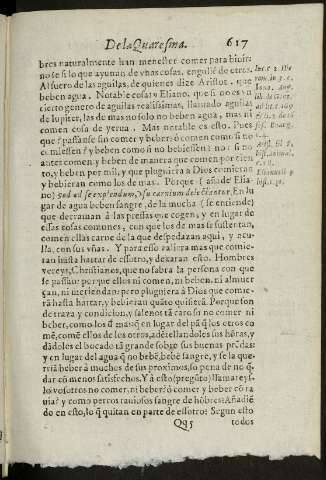 De la Quaresma. 617
bres naturalmente han menester comer para biuir:
no se si lo que ayunan de vnas cosas, engullē de otras.
Al fuero de las aguilas, de quienes dize Aristot. que
beben agua. Notable cosa: y Eliano, que si no es vn
cierto genero de aguilas realissimas, llamado aguilas
de Iupiter, las de mas no solo no beben agua, mas ni
comen cosa de yerua. Mas notable es esto. Pues
que? passanse sin comer y beber: ò comen como si no
comiessen? y beben como si no bebiessen? no: si no
antes comen, y beben de manera que comen por cien
to, y beben por mil, y que pluguiera à Dios comieran
y bebieran como los de mas. Porque (añade Elia-
no)
gar de agua beben sangre, de la mucha (se entiende)
que derraman à las pressas que cogen, y en lugar de
essas cosas comunes, con que los de mas se sustentan,
comen ellas carne de la que despedazan aqui, y acu-
lla, con sus vñas. Y para esso valiera mas que comie-
ran hasta hartar de essotro, y dexaran esto. Hombres
vereys, Christianos, que no sabra la persona con que
se passan: por que ellos ni comen, ni beben, ni almuer
çan, ni meriendan: pero pluguiera à Dios que comie-
rā hasta hartar, y bebieran quāto quisierā. Porque son
de traza y condicion, y salenos tā caro su no comer ni
beber, como los
mē, comē ellos de los otros,
dādoles el bocado tā grande sobre sus buenas
y en lugar del agua q̄ no bebē, bebē sangre, y se la que-
rriā beber à muchos de sus proximos, so pena de no q̄-
dar cō menos satisfechos. Y à esto (pregūto) llamareys
lo vosotros no comer, ni beber? ò comer y beber cō ra
uia? y como perros rauiosos sangre de hōbres? Añadiē
do en esto, lo q̄ quitan en parte de essotro? Segun esto
Qq 5 todos